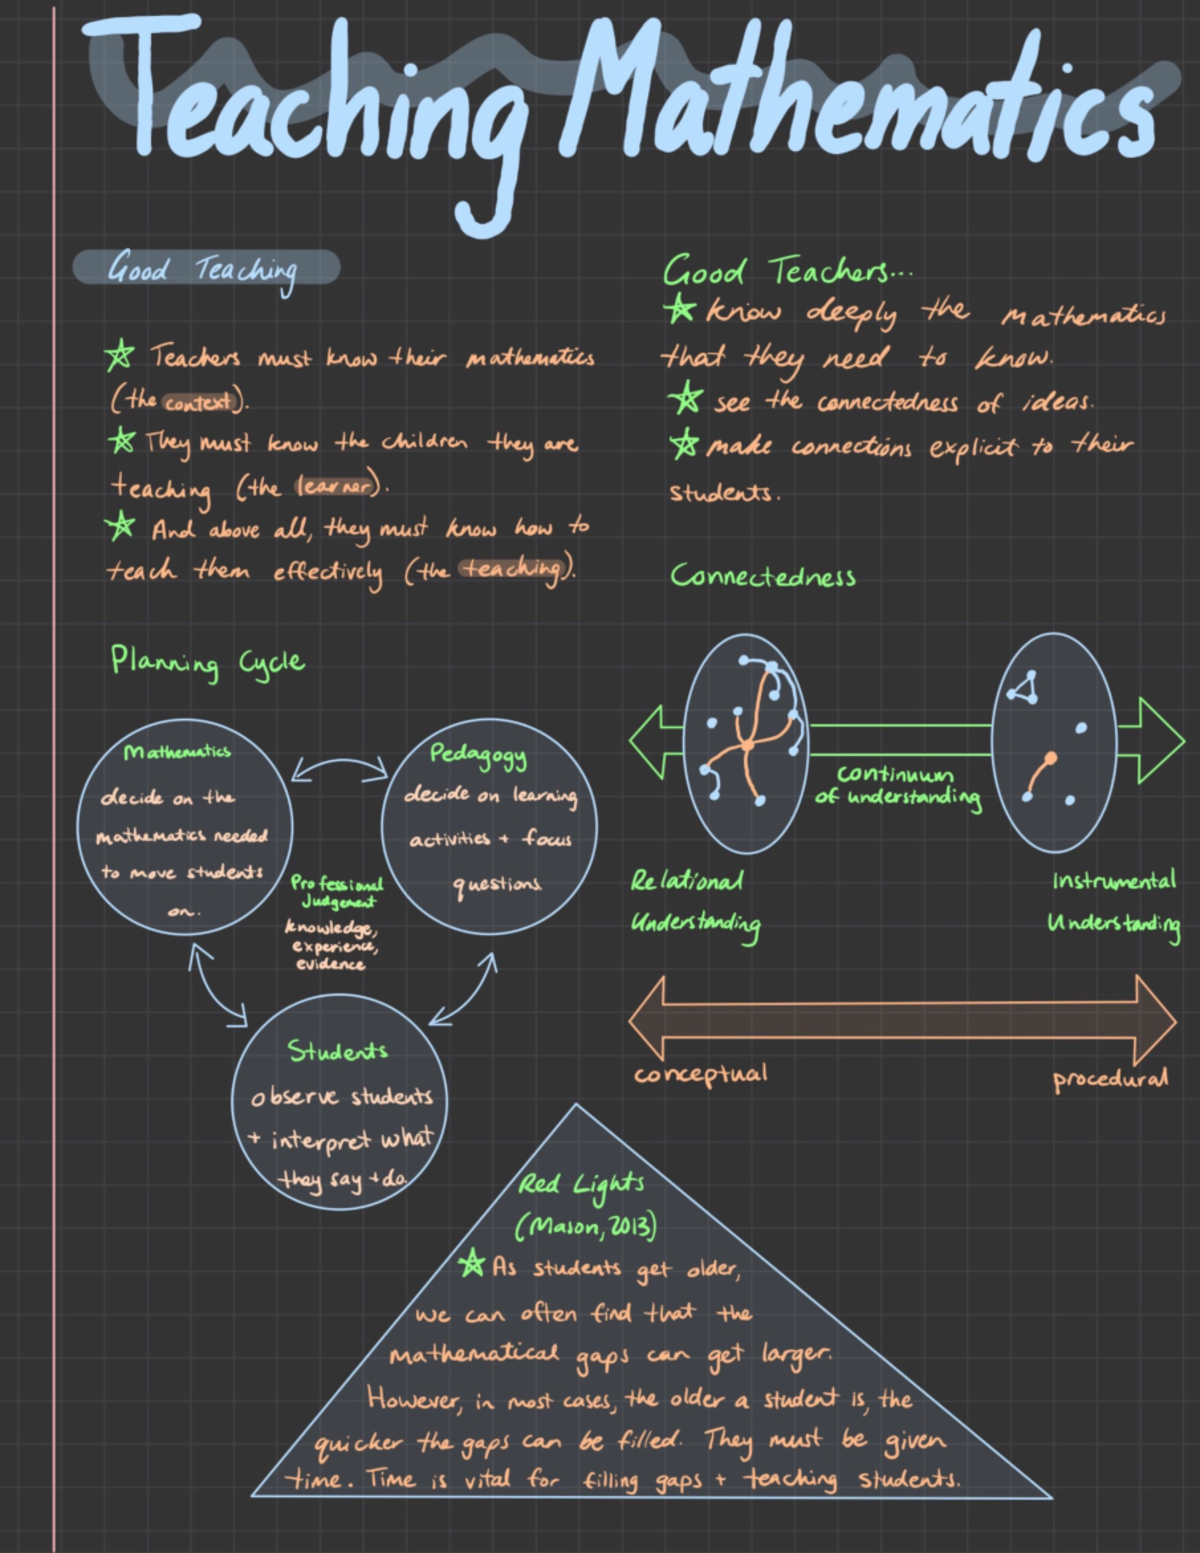 Teaching Mathematics
Good Teaching
☆ Teachers must know their mathematics
(the context).
☆ They must know the children they are
teaching (the learner).
☆ And above all, they must know how to
teach them effectively (the teaching).
Good Teachers...
☆ know deeply the mathematics
that they need to know.
☆ see the connectedness of ideas.
☆ make connections explicit to their
students.
Planning Cycle
Mathematics
decide on the
mathematics needed
to move students
on.
Pedagogy
decide on learning
activities + focus
questions.
Professional
Judgement
knowledge,
experience,
evidence
Students
observe students
+ interpret what
they say + do.
Connectedness
continuum
of understanding
Relational
Understanding
Instrumental
Understanding
conceptual
procedural
Red Lights
(Mason, 2013)
☆ As students get older,
we can often find that the
mathematical gaps can get larger.
However, in most cases, the older a student is, the
quicker the gaps can be filled. They must be given
time. Time is vital for filling gaps + teaching students.